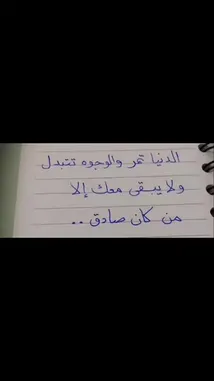 الدنيا تمر والوجوه تتبدل
ولا يبقى معك إلا
من كان صادق ..